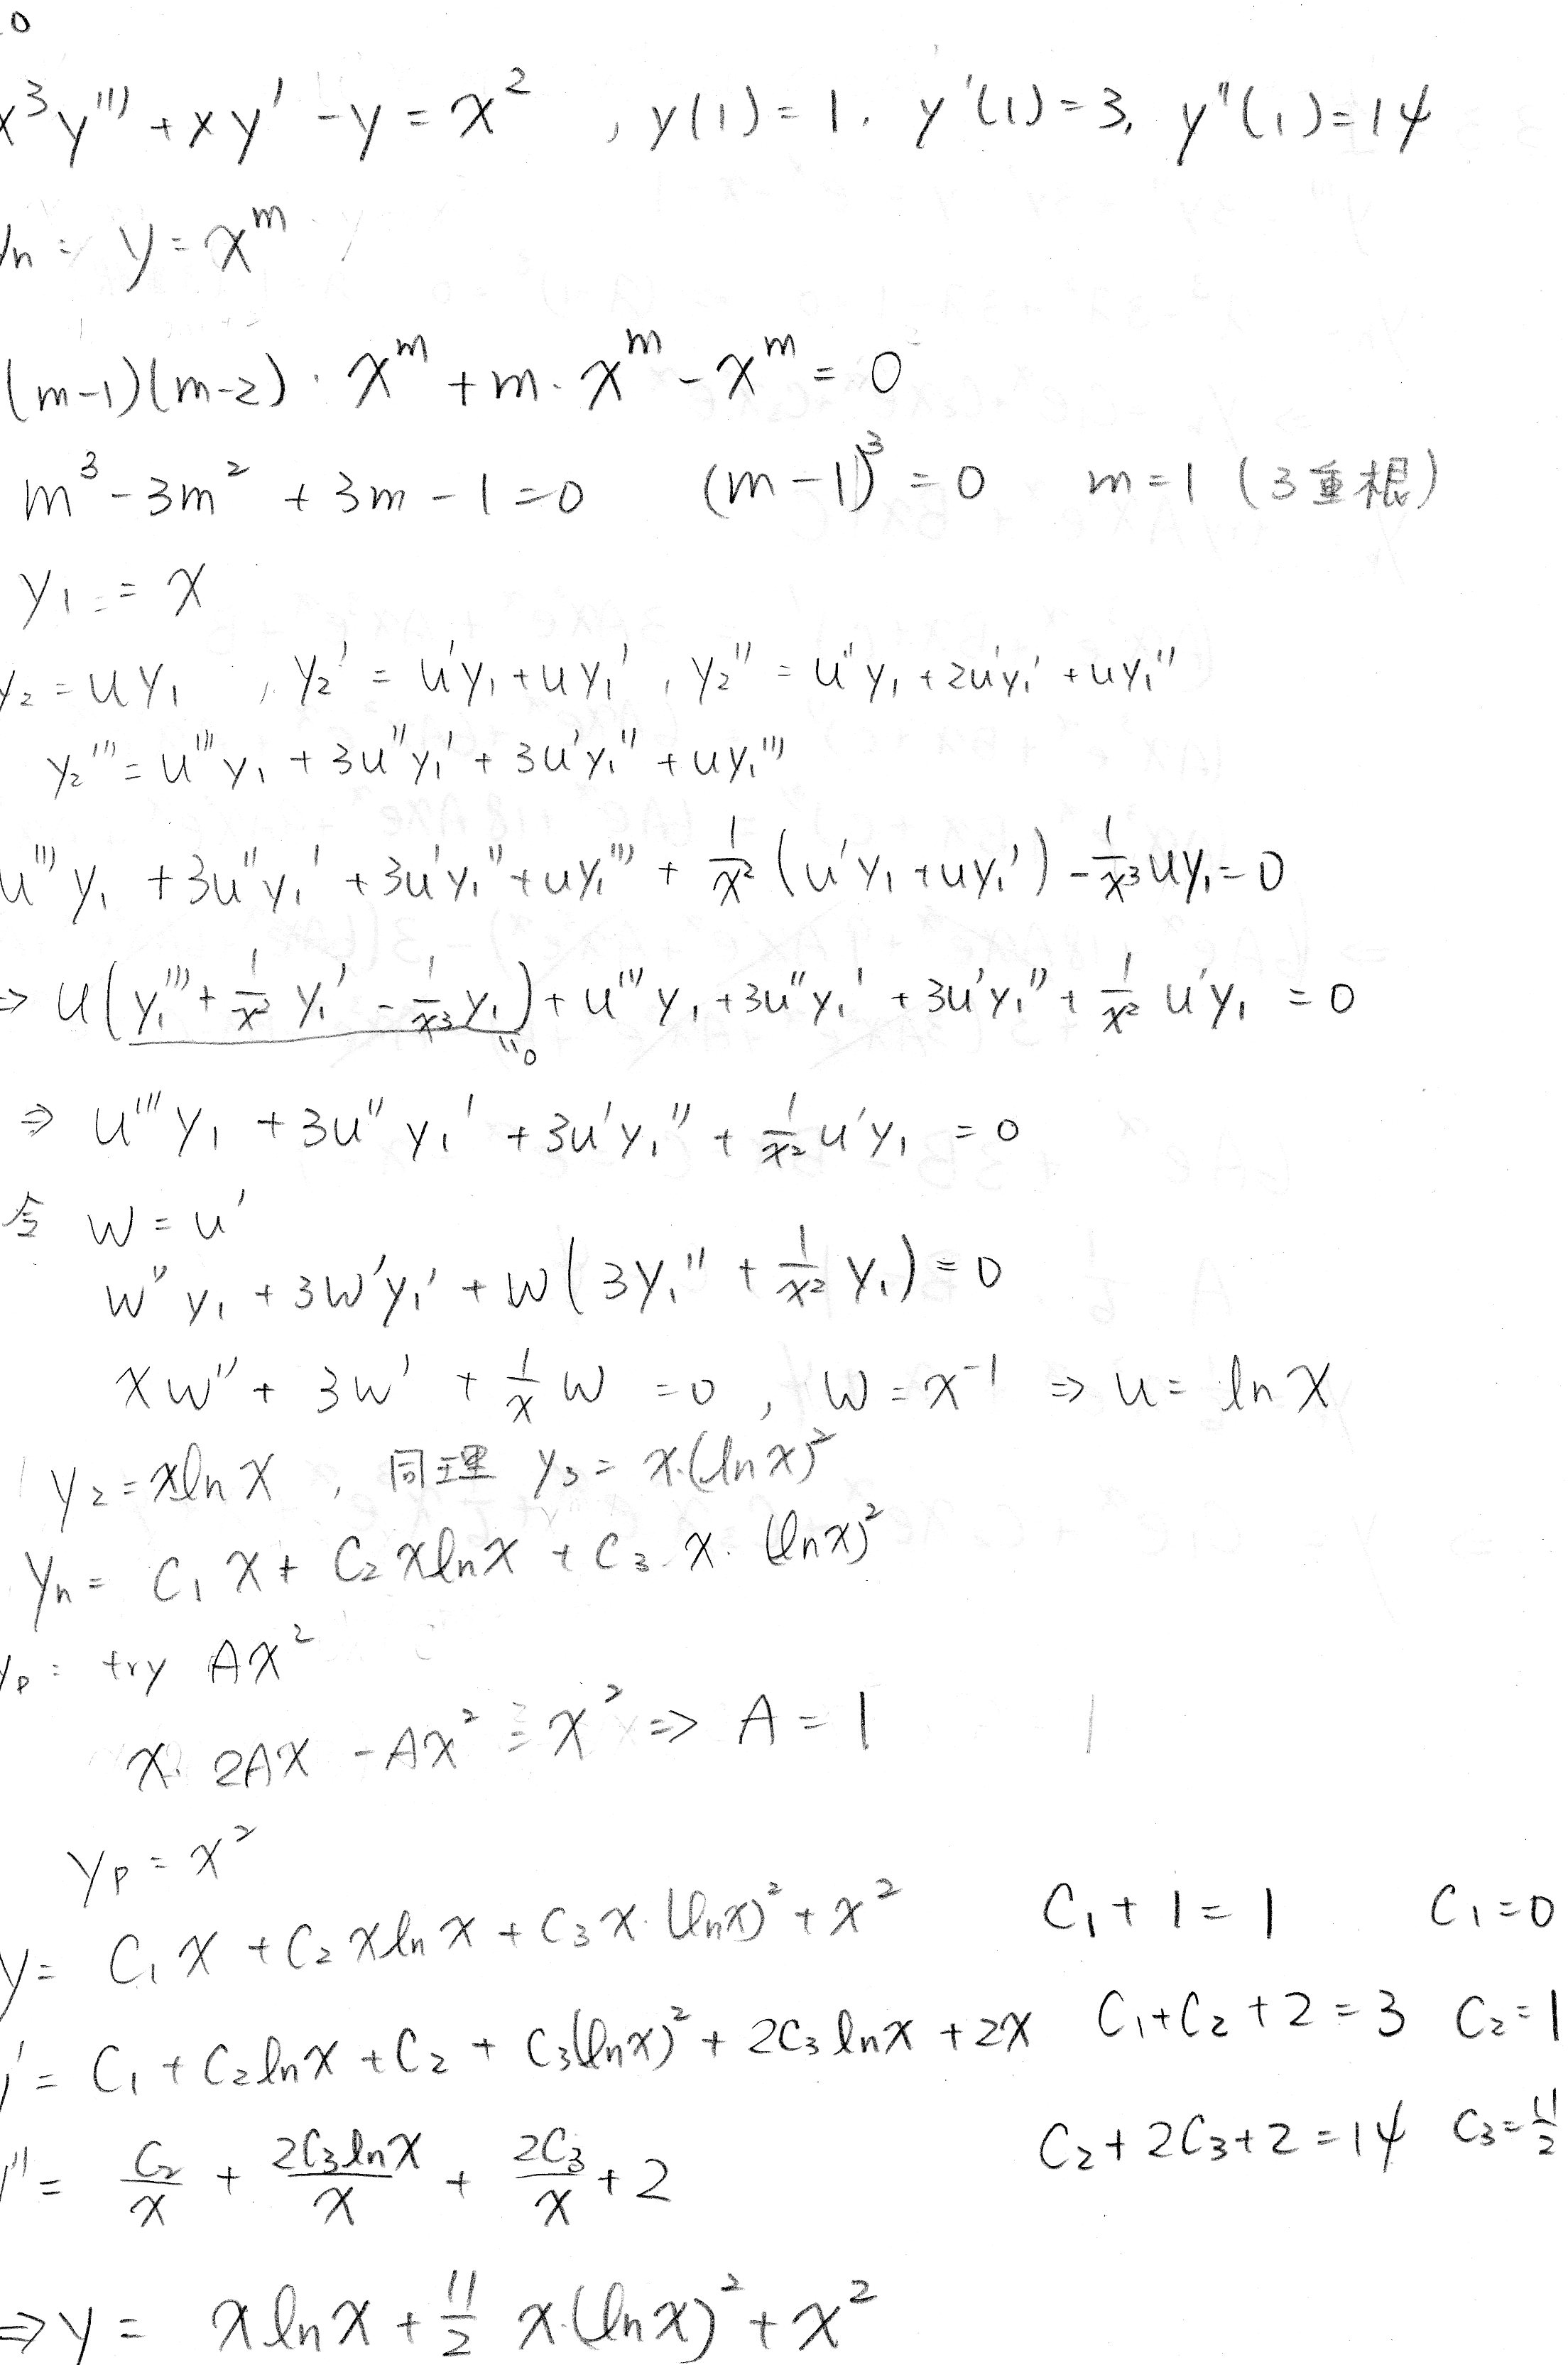 0
x³y''' + xy' - y = x² , y(1) = 1, y'(1) = 3, y''(1) = 14
yh = y = x^m
(m-1)(m-2) · x^m + m · x^m - x^m = 0
m³ - 3m² + 3m - 1 = 0 (m-1)³ = 0 m = 1 (3重根)
y₁ = x
y₂ = uy₁ , y₂' = u'y₁ + uy₁' , y₂'' = u''y₁ + 2u'y₁' + uy₁''
y₂''' = u'''y₁ + 3u''y₁' + 3u'y₁'' + uy₁'''
u'''y₁ + 3u''y₁' + 3u'y₁'' + uy₁''' + 1/x² (u'y₁ + uy₁') - 1/x³ uy₁ = 0
⇒ u(y₁''' + 1/x² y₁' - 1/x³ y₁) + u'''y₁ + 3u''y₁' + 3u'y₁'' + 1/x² u'y₁ = 0
"0
⇒ u'''y₁ + 3u''y₁' + 3u'y₁'' + 1/x² u'y₁ = 0
令 w = u'
w''y₁ + 3w'y₁' + w(3y₁'' + 1/x² y₁) = 0
xw'' + 3w' + 1/x w = 0 , w = x⁻¹ ⇒ u = ln x
y₂ = x ln x , 同理 y₃ = x·(ln x)²
yh = C₁x + C₂x ln x + C₃·x·(ln x)²
yp = try Ax²
x · 2Ax - Ax² = x² ⇒ A = 1
yp = x²
y = C₁x + C₂x ln x + C₃x·(ln x)² + x² C₁ + 1 = 1 C₁ = 0
y' = C₁ + C₂ ln x + C₂ + C₃(ln x)² + 2C₃ ln x + 2x C₁ + C₂ + 2 = 3 C₂ = 1
y'' = C₂/x + 2C₃ ln x/x + 2C₃/x + 2 C₂ + 2C₃ + 2 = 14 C₃ = 11/2
⇒ y = x ln x + 11/2 x·(ln x)² + x²